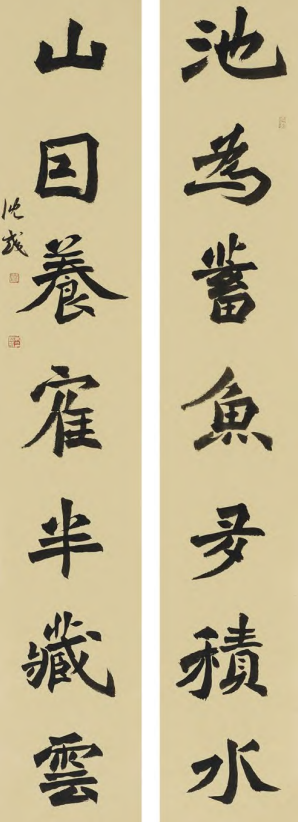 池為蓄魚多積水
山囙養寉半藏雲